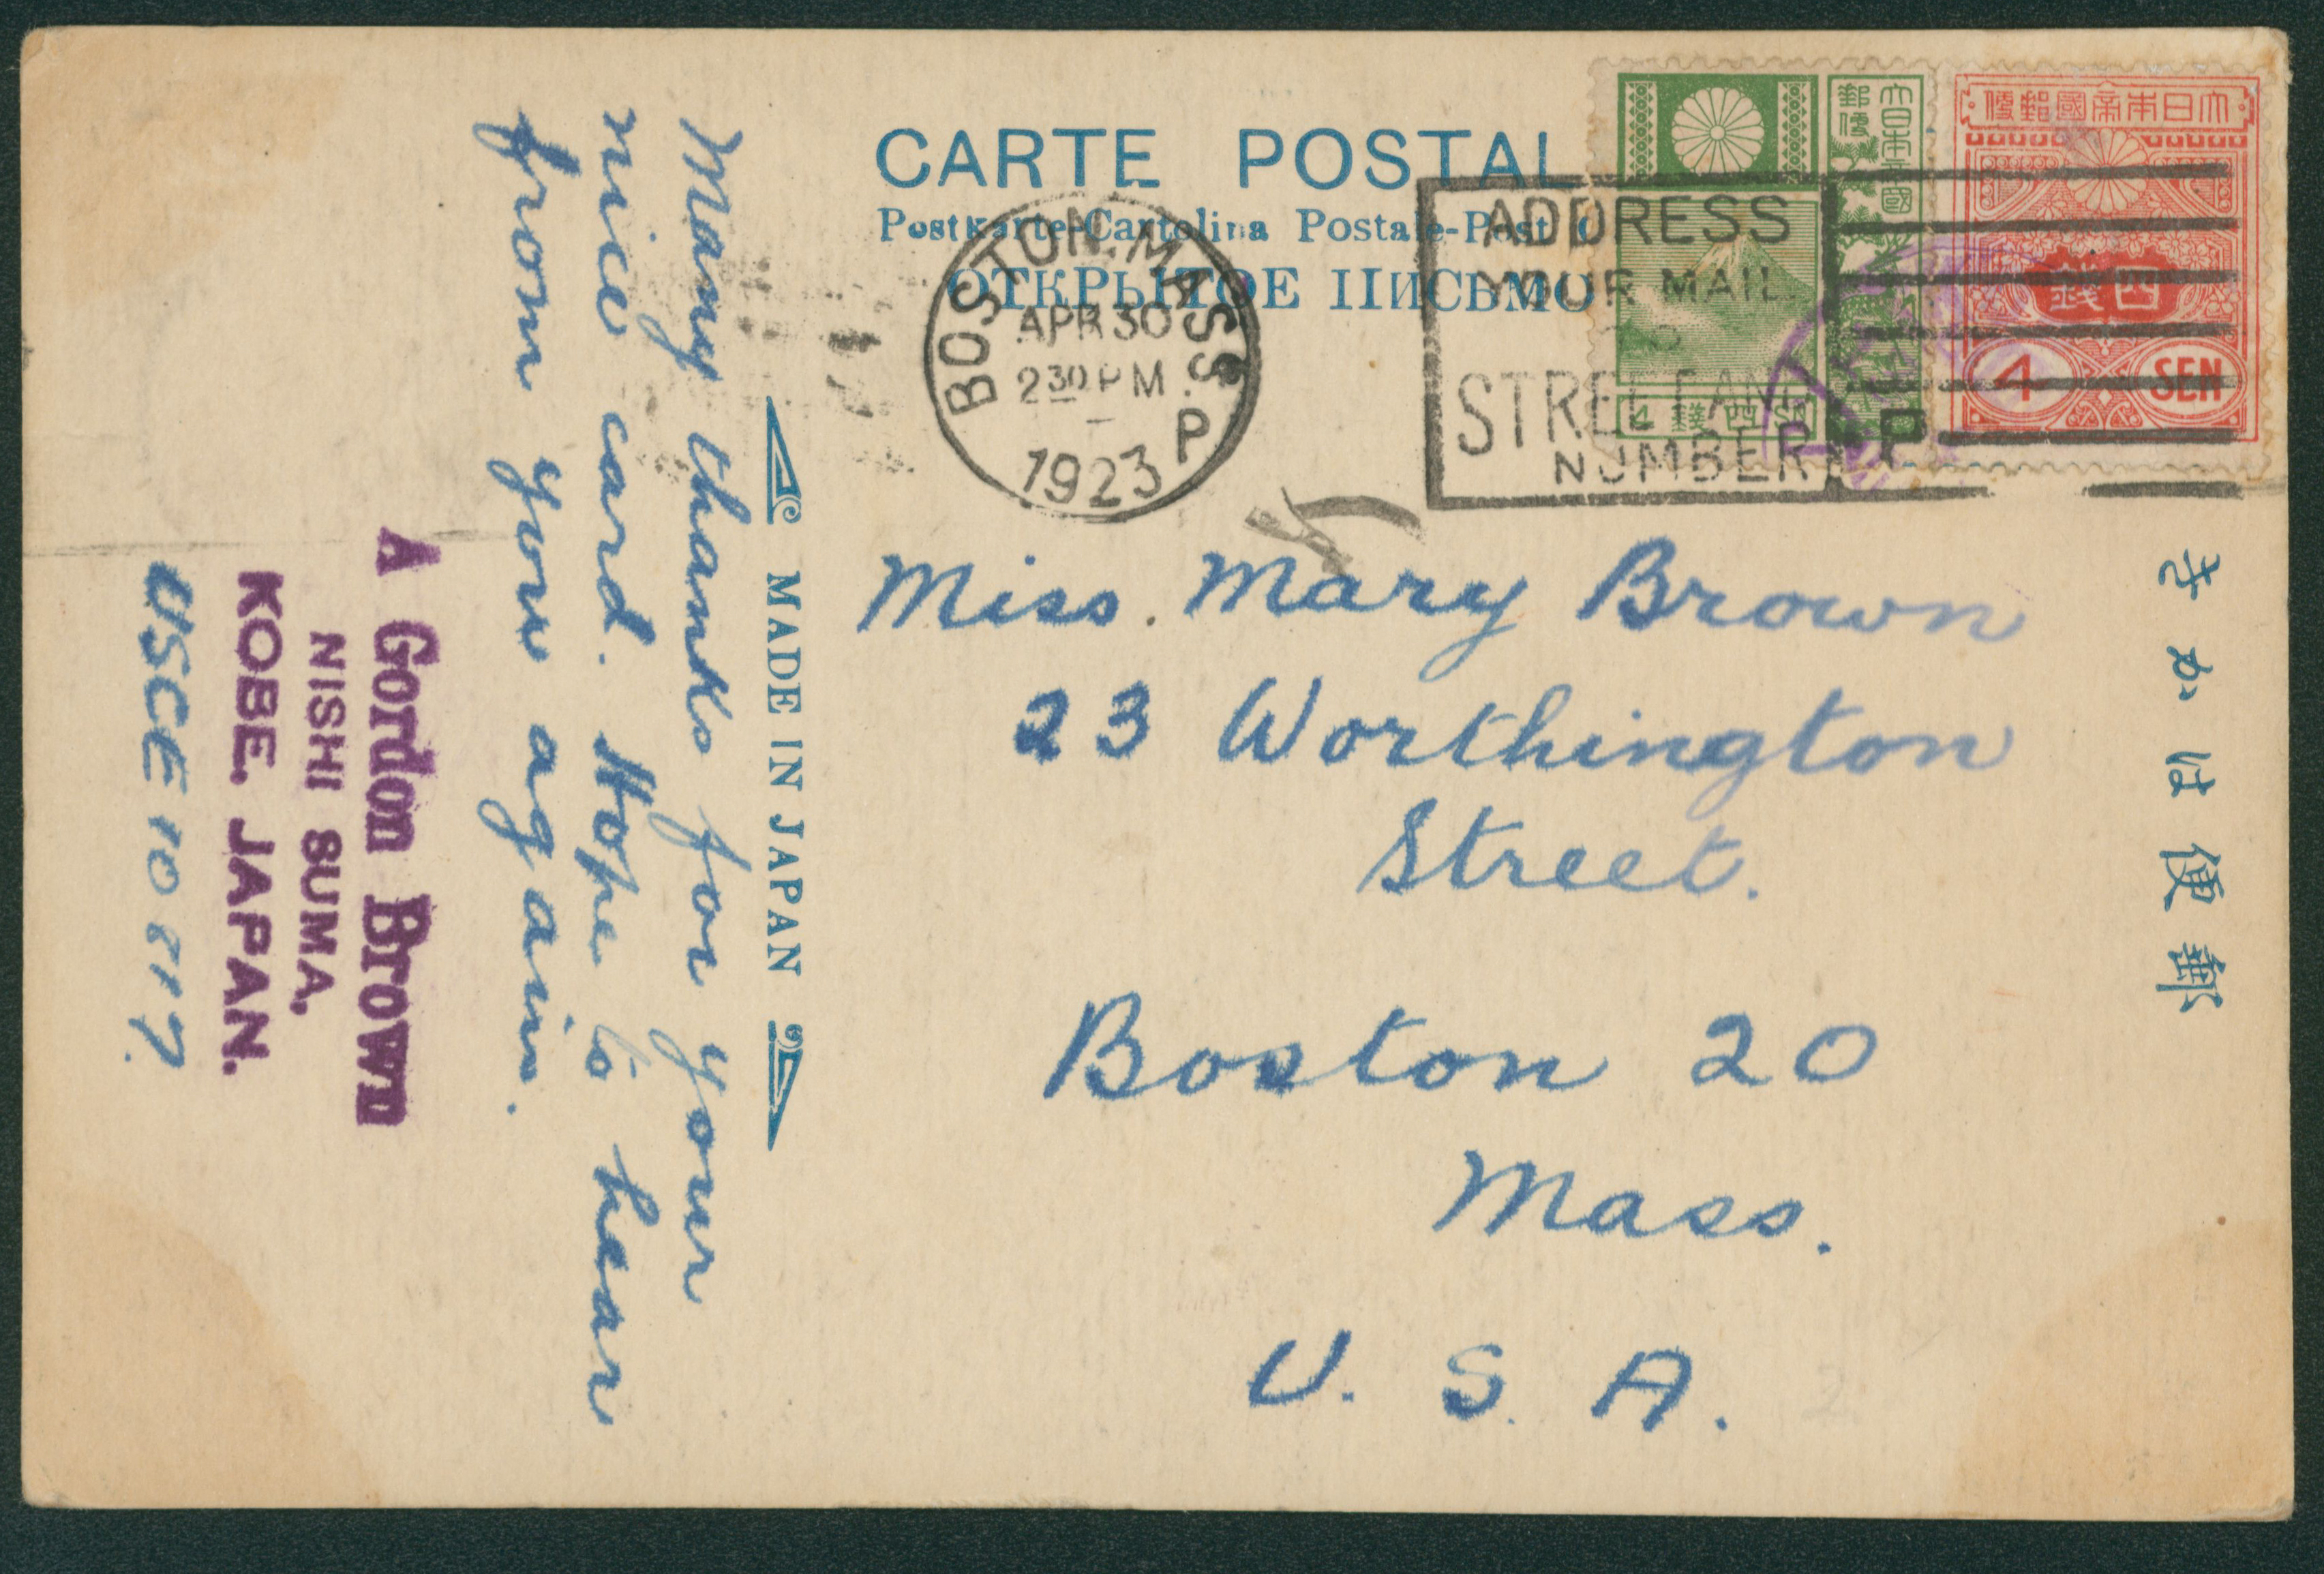 CARTE POSTAL
Postkarte-Cartolina Postale-Post
ОТКРЫТОЕ ПИСЬМО
BOSTON, MASS.
APR 30
2 30 PM
1923
P
ADDRESS
YOUR MAIL
TO
STREET AND
NUMBER
P
大日本帝國
郵便
4 錢四 SN
大日本帝國郵便
四錢
4 SEN
郵便はかき
Miss. Mary Brown
23 Worthington
Street.
Boston 20
Mass.
U. S. A.
MADE IN JAPAN
Many thanks for your
nice card. Hope to hear
from you again.
A Gordon Brown
NISHI SUMA,
KOBE. JAPAN.
USCE 10817.